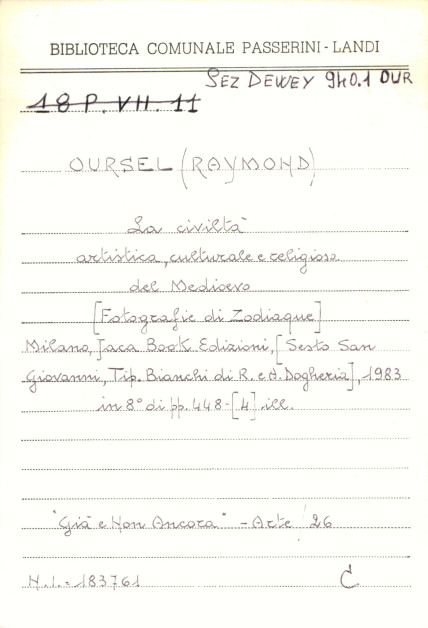 BIBLIOTECA COMUNALE PASSERINI - LANDI
SEZ DEWEY 940.1 OUR
18 P. VII. 11
OURSEL (RAYMOND)
La civiltà
artistica, culturale e religiosa
del Medioevo
[Fotografie di Zodiaque]
Milano, Jaca Book Edizioni, [Sesto San
Giovanni, Tip. Bianchi di R. e A. Dogheria], 1983
in 8° di pp. 448-[4] ill.
"Già e Non Ancora" - Arte / 26
N.I. = 183761
C